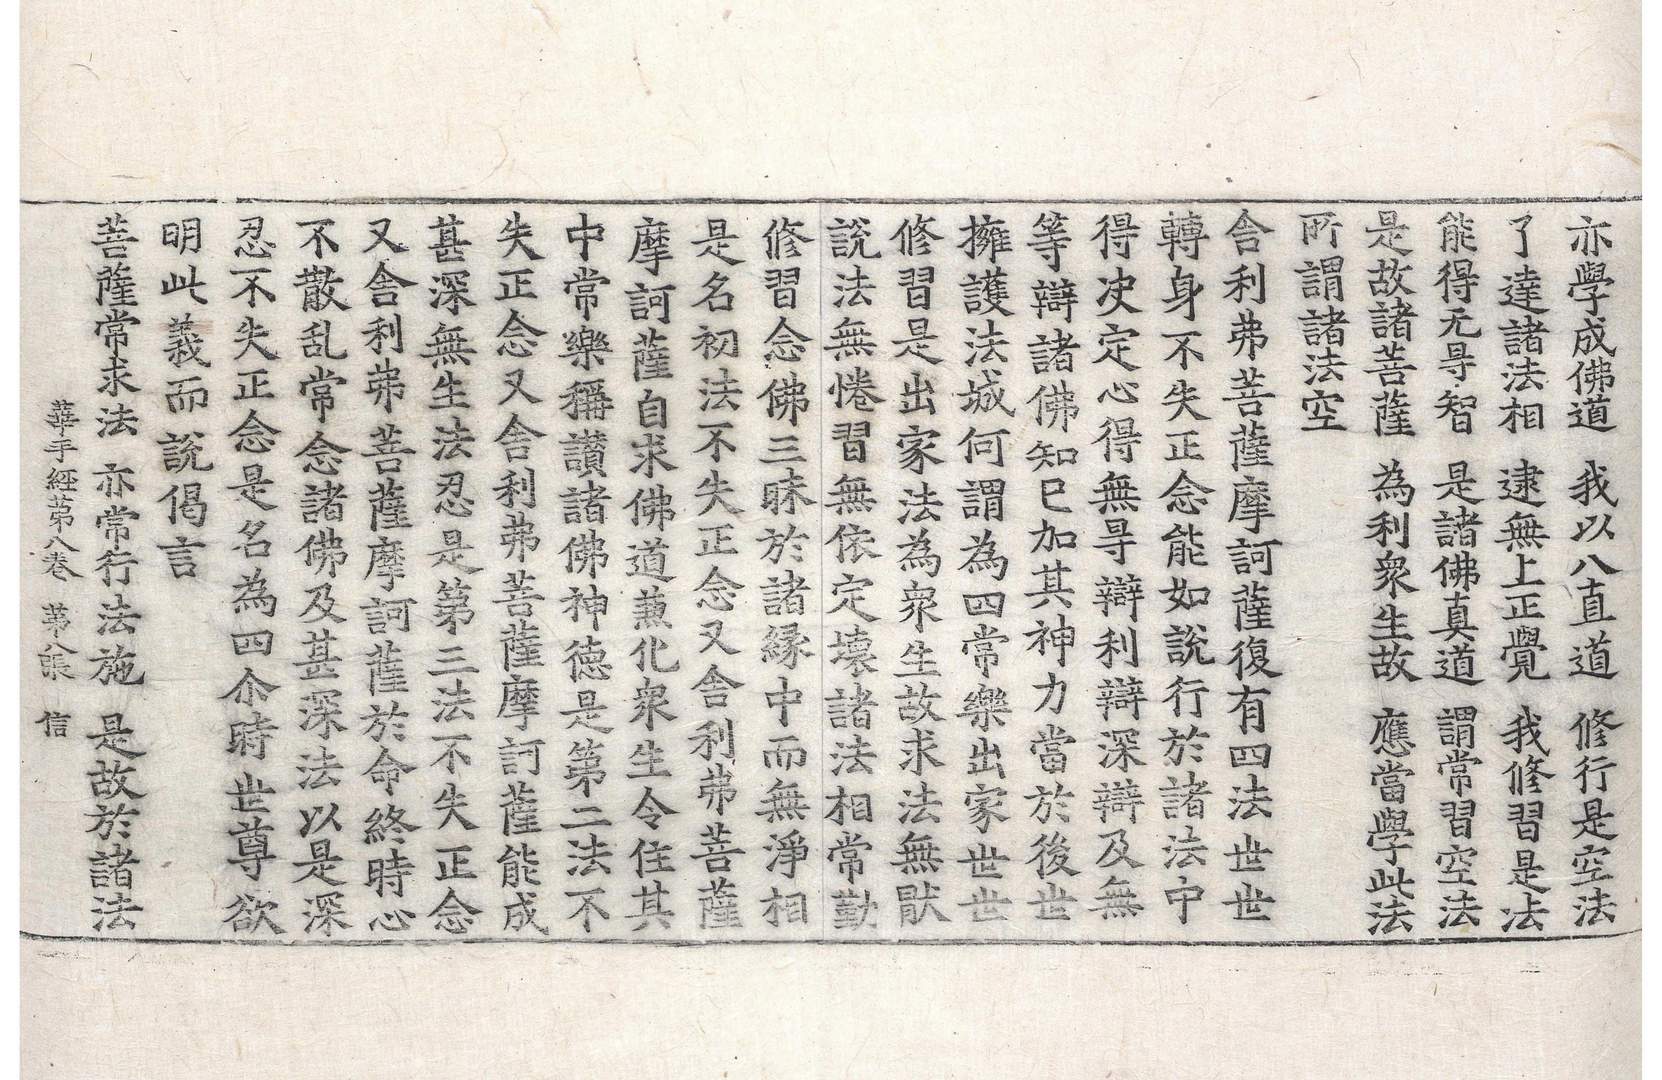 亦學成佛道　我以八直道　修行是空法
了達諸法相　逮無上正覺　我修習是法
能得无㝵智　是諸佛真道　謂常習空法
是故諸菩薩　為利衆生故　應當學此法
所謂諸法空
舍利弗菩薩摩訶薩復有四法世世
轉身不失正念能如說行於諸法中
得决定心得無㝵辯利辯深辯及無
等辯諸佛知已加其神力當於後世
擁護法城何謂為四常樂出家世世
修習是出家法為衆生故求法無猒
說法無惓習無依定壞諸法相常勤
修習念佛三昧於諸縁中而無淨相
是名初法不失正念又舍利弗菩薩
摩訶薩自求佛道兼化衆生令住其
中常樂稱讃諸佛神德是第二法不
失正念又舍利弗菩薩摩訶薩能成
甚深無生法忍是第三法不失正念
又舍利弗菩薩摩訶薩於命終時心
不散乱常念諸佛及甚深法以是深
忍不失正念是名為四尒時世尊欲
明此義而說偈言
菩薩常求法　亦常行法施　是故於諸法
華手經第八卷　第八張　信